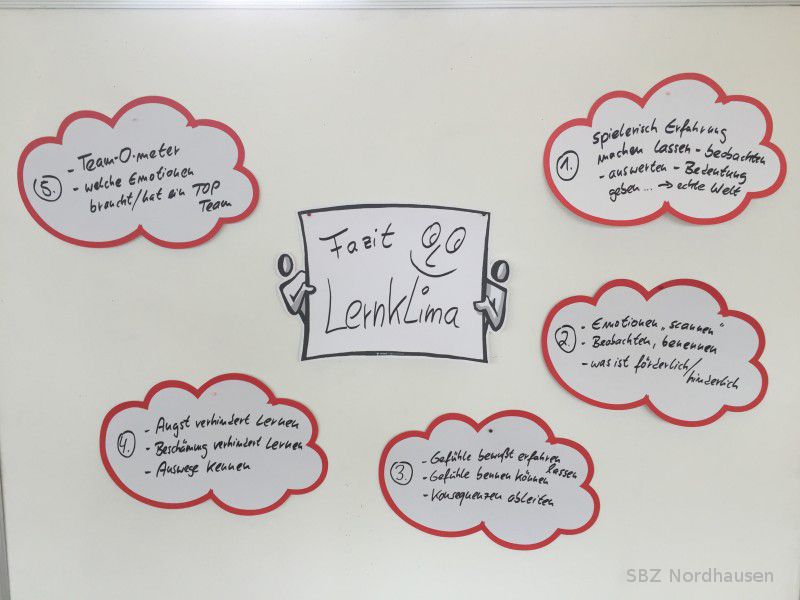 Fazit
Lernklima
1.
spielerisch Erfahrung
machen lassen - beobachten
- auswerten - Bedeutung
geben... → echte Welt
2.
- Emotionen „scannen"
- Beobachten, benennen
- was ist förderlich/
hinderlich
3.
- Gefühle bewußt erfahren
lassen
- Gefühle bennen können
- Konsequenzen ableiten
4.
- Angst verhindert Lernen
- Beschämung verhindert Lernen
- Auswege kennen
5.
- Team-O-meter
- welche Emotionen
braucht/hat ein TOP
Team
SBZ Nordhausen